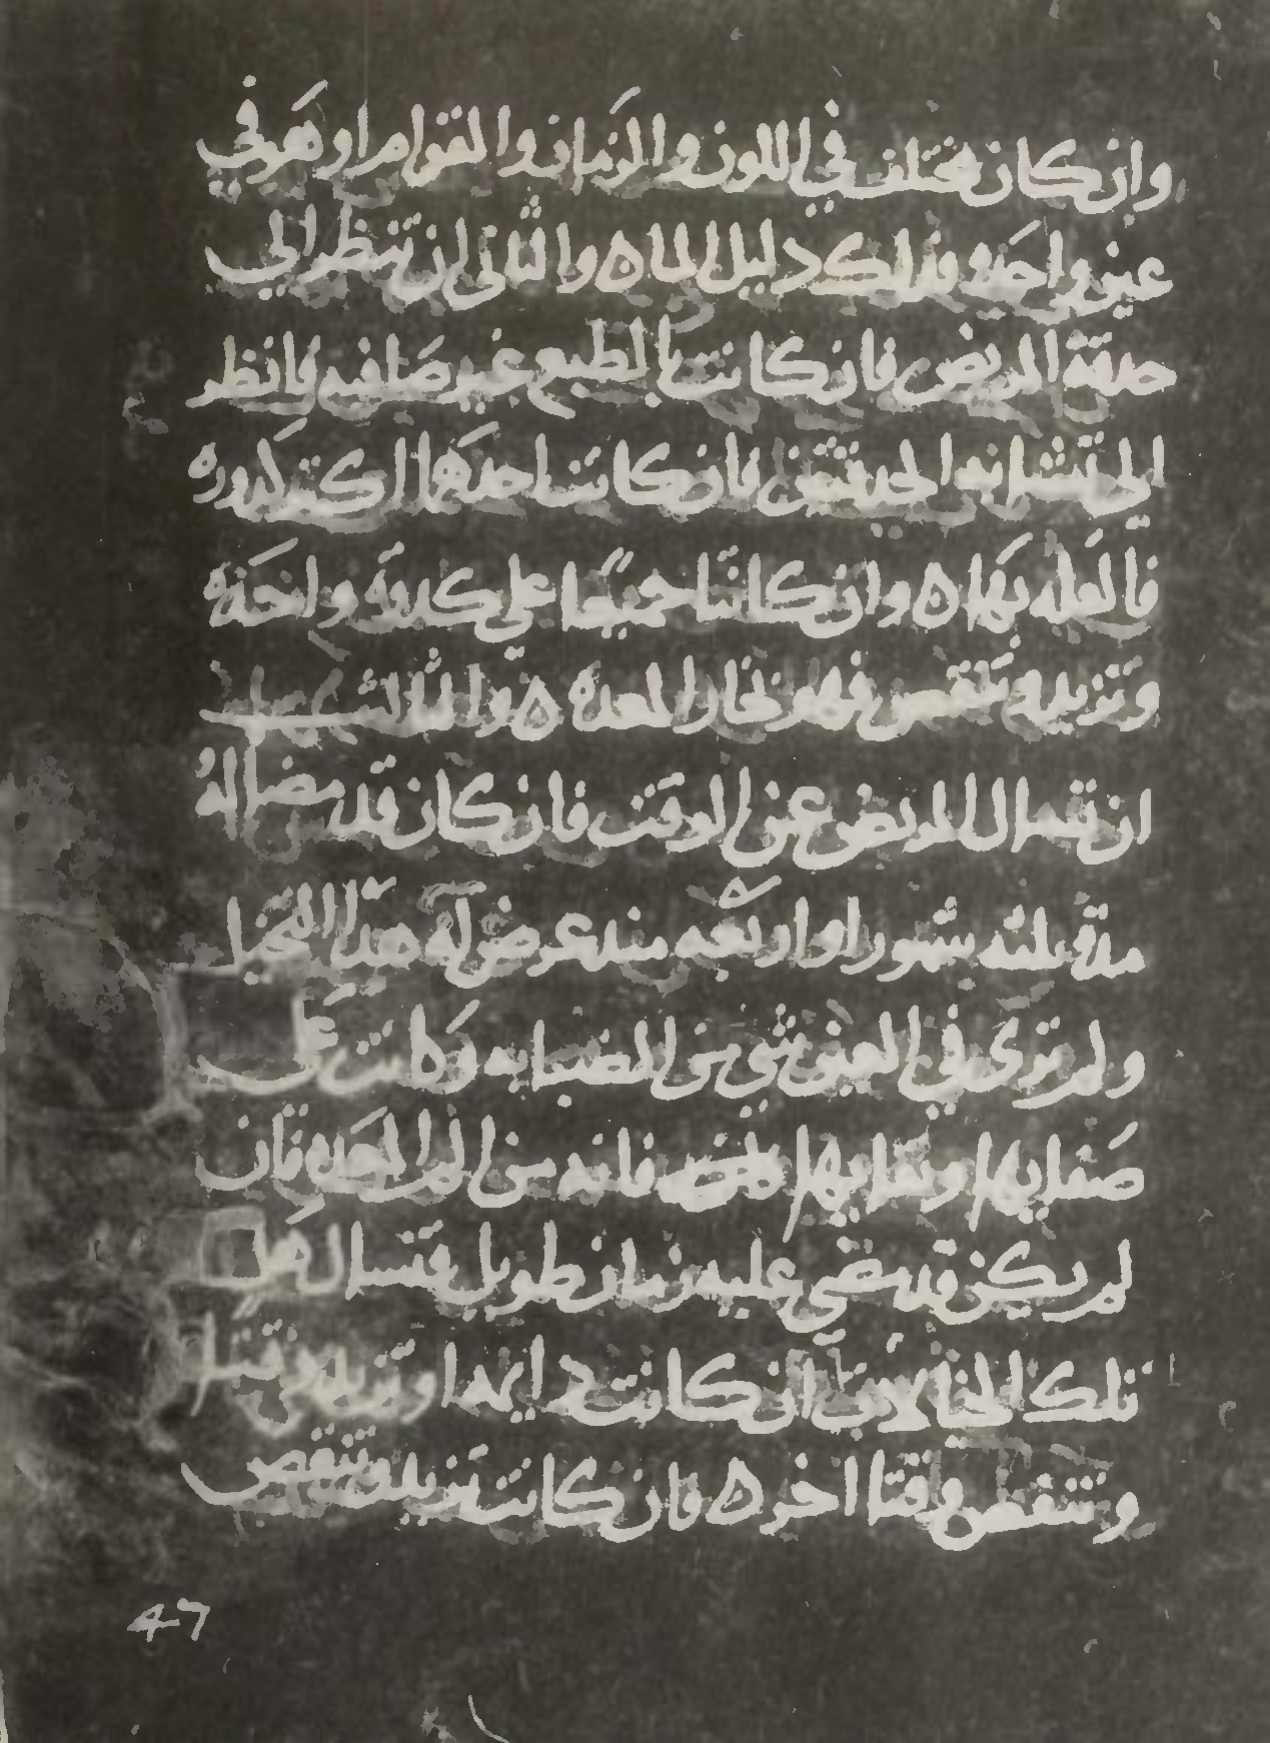 وان كان يختلف في اللون والزمان والقوام او هو في
عين واحده فذلك دليل الماه والثاني ان تنظر الي
حدقة المريض فان كانت بالطبع غير صافيه فانظر
الي تشابه الحدقتين فان كانت احدهما اكثر كدوره
فالعله بها ه وان كانتا جميعا علي كدوره واحده
وتزيد وتنقص فهو بخار المعده ه والثالث
ان تسال المريض عن الوقت فان كان قد مضا له
مدة ثلثه شهور او اربعه منذ عرض له هذا التخيل
ولم ترى في العين شي من الضبابه وكانت على
صفايها ونقايها فانه من المعده فان
لم يكن قد مضي عليه زمان طويل فتسال هل
تلك الخيالات ان كانت دايمه او تزيد وقتا
وتنقص وقتا اخر ه فان كانت تزيد وتنقص
47